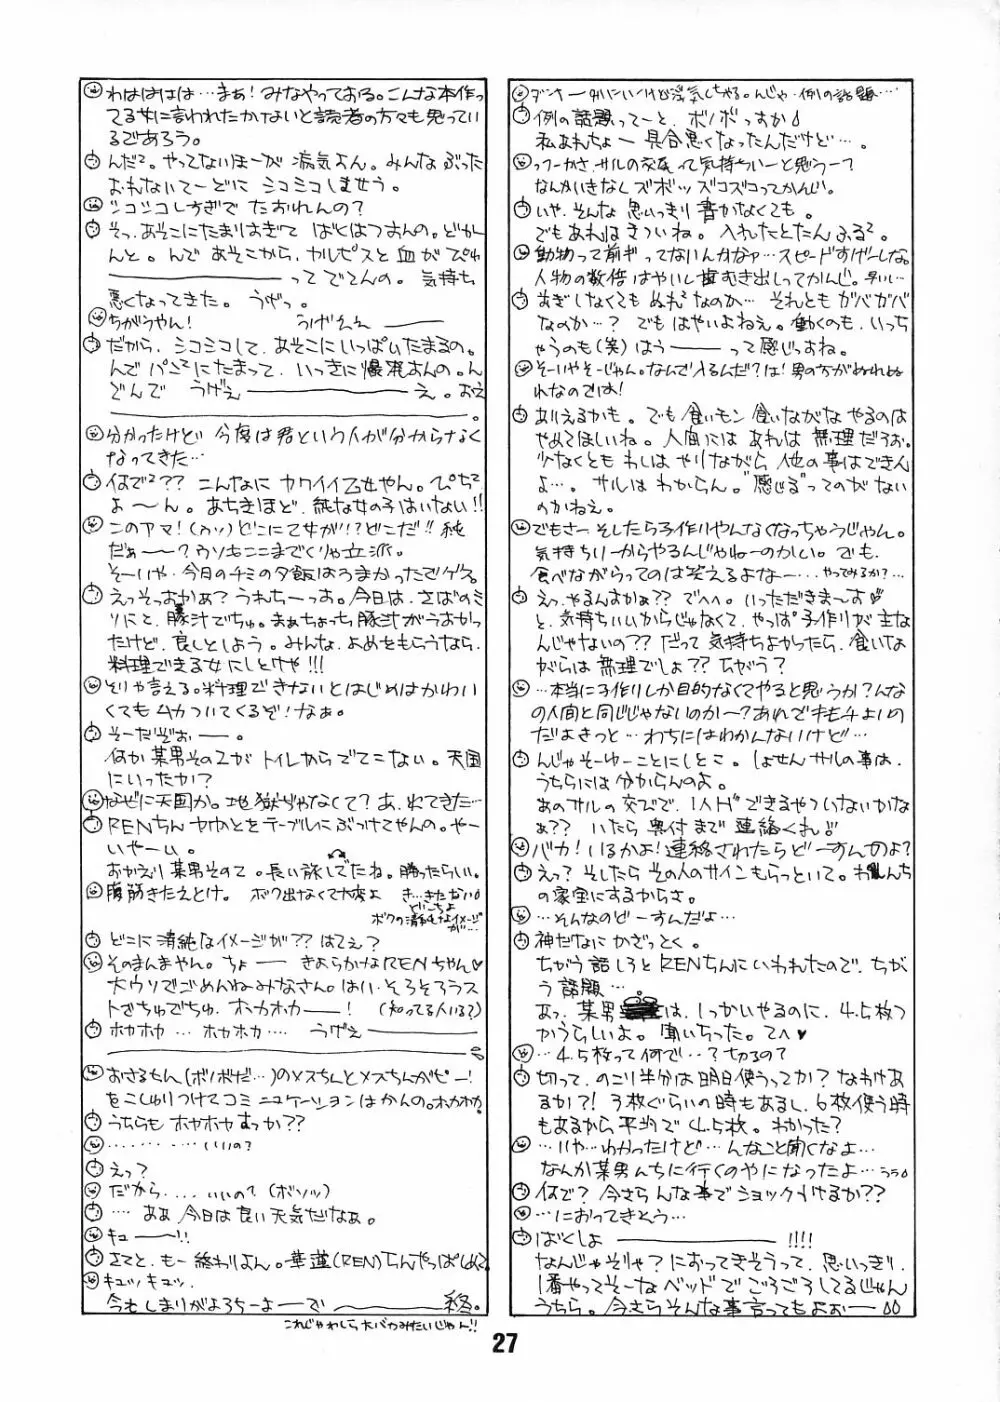 例の話題ってーと、ボノボっすか♪
私あれちょー具合悪くなったんだけど…。
つーかさ、サルの交尾って気持ちいーと思うー?
なんかいきなしズボッズコズコってかんじ。
いや、そんな思いっきり書かなくても。
でもあれはきついね。入れたとたんふる²。
動物って前ギってないんかなァ…スピードすげーしな。
人物の数倍はやいし歯むき出しってかんじ。早いし…
まぎしなくてもぬれ²なのか…それともガバガバ
なのか…? でもはやいよねぇ。働くのも、いっち
ゃうのも(笑)はうーーーって感じっすね。
そーいやそーじゃん。なんで入るんだ?は!男の方がぬれぬ
れなのでは!
ありえるかも。でも食いモン食いながなやるのは
やめてほしいね。人間にはあれは無理だろぉ。
少なくともわしはやりながら他の事はできん
よ…。サルはわからん。"感じる"ってのがない
のかねぇ。
でもさーそしたら子作りやんなくなっちゃうじゃん。
気持ちいーからやるんじゃねーのかい。でも、
食べながらってのは笑えるよなー…やってみるか?…
えっ、やるんすかぁ?? でへへ。いっただきまーす♥
と、気持ちいいからじゃなくて、やっぱ子作りが主な
んじゃないの?? だって気持ちよかったら、食いな
がらは無理でしょ?? ちがう?
…本当に子作りしか目的なくてやると思うか?んな
の人間と同じじゃないのか〜?あれで
だよきっと…わちにはわかんないけど…
んじゃそーゆーことにしとこ。しょせんサルの事は、
うちらには分からんのよ。
あのサルの交びで、1人Hできるやついないかな
ぁ?? いたら奥付まで連絡くれ!!
バカ!いるかよ!連絡されたらどーすんのよ?
えっ? そしたらその人のサインもらっといて。わしんち
の家宝にするからさ。
…そんなのどーすんだよ…
神だなにかざっとく。
ちがう話しろとRENちんにいわれたので、ちが
う話題…
あっ、某男は、1しかいやるのに、4.5枚つ
かうらしいよ。聞いちった。てへ♥
…4.5枚って何で…?切るの?
切って、のこり半分は明日使うってか?なわけあ
るか?! 3枚ぐらいの時もあるし、6枚使う時
もあるから平均で4.5枚。わかった?
…いや…わかったけど…んなこと聞くなよ…
なんか某男んちに行くのやになったよ…うらら
何で? 今さらんな事でショックうけるか??
…におってきとう…
ばくしょーーーーー!!!!
なんじゃそりゃ?におってきそうって、思いっきり、
1番やってそーなベッドでごろごろしてるじゃん
うちら。今さらそんな事言ってもよぉー
わはははは…まぁ!みなやっておる。こんな本作っ
てる女に言われたかないと読者の方々も思ってい
るであろう。
んだ²。やってないほーが病気よん。みんなぶった
おれないてーどにシコシコしませう。
シコシコしすぎでたおれんの?
そっ、あそこにたまりすぎてばくはつすんの。どか
んと。んであそこから、カルピスと血がぴゅ
ーーーーーーーーってでてんの。気持ち
悪くなってきた。うげっ。
ちがうやん! うげええーーー
だから、シコシコして、あそこにいっぱいたまるの。
んでパン²にたまって、いっきに爆発すんの。ん
どんで うげぇーーーーーーーえ。おえ
ーーーーーーーーーーーーーーーー。
分かったけど今度は君という人が分からなく
なってきた…
なんで²?? こんなにカワイイ乙女やん。ぴち²
よ〜ん。あちきほど、純な女の子はいない!!
このアマ!(ウソ)どこにて女が!!?どこだ!!純
だぁ〜〜?ウソもここまでくりゃ立派。
そーいや、今日のチミの夕飯はうまかったでゲス。
えっそっすかぁ? うれちーっす。今日は、さばのミ
ソにと、豚汁でちゅ。まぁちょっち豚汁がうすかっ
たけど、良しとしよう。みんな、よめをもらうなら、
料理できる女にしとけや!!!
そりゃ言える。料理できないとはじめはかわい
くてもムカついてくるぞ!なぁ。
そーだぞぉーー。
何か某男その2がトイレからでてこない。天国
にいったか?
なぜに天国か。地獄ぢゃなくて? あ、れてきた…
RENちんヤカンとをテーブルにぶつけてやんの。やー
いやーい。
おかえり某男その2。長い旅してたね。勝ったらしい。
腹筋きたえとけ。ボク出なくて大変よ き…きたない
どこちよ
ボクの清純なイメージ
が…
どこに清純なイメージが?? はてぇ?
そのまんまやん。ちょーーきよらかなRENちゃん♥
大ウソでごめんねみなさん。はい、そろそろラス
トでちゅでちゅ、ホカホカーー! (知ってる人いる?)
ホカホカ … ホカホカ… うげぇーーーーー
ーーーーーーーーーーーーーーーー
おさるちん(ボノボだ…)のメスちんとメスちんがピー!
をこしゅりつけてコミュニュケーションはかんの。ホカホカ
うちらもホカホカすっか??
……………いいの?
えっ?
だから……いいの?(ボソッ)
…‥ああ今日は良い天気だなぁ。
キューー!!
さてと、もー終わりよん。華蓮(REN)ちんやっぱしめて
キュッキュッ。
今もしまりがよろちーよーーでーーーーー終。
これじゃわしら大バカみたいじゃん!!
27